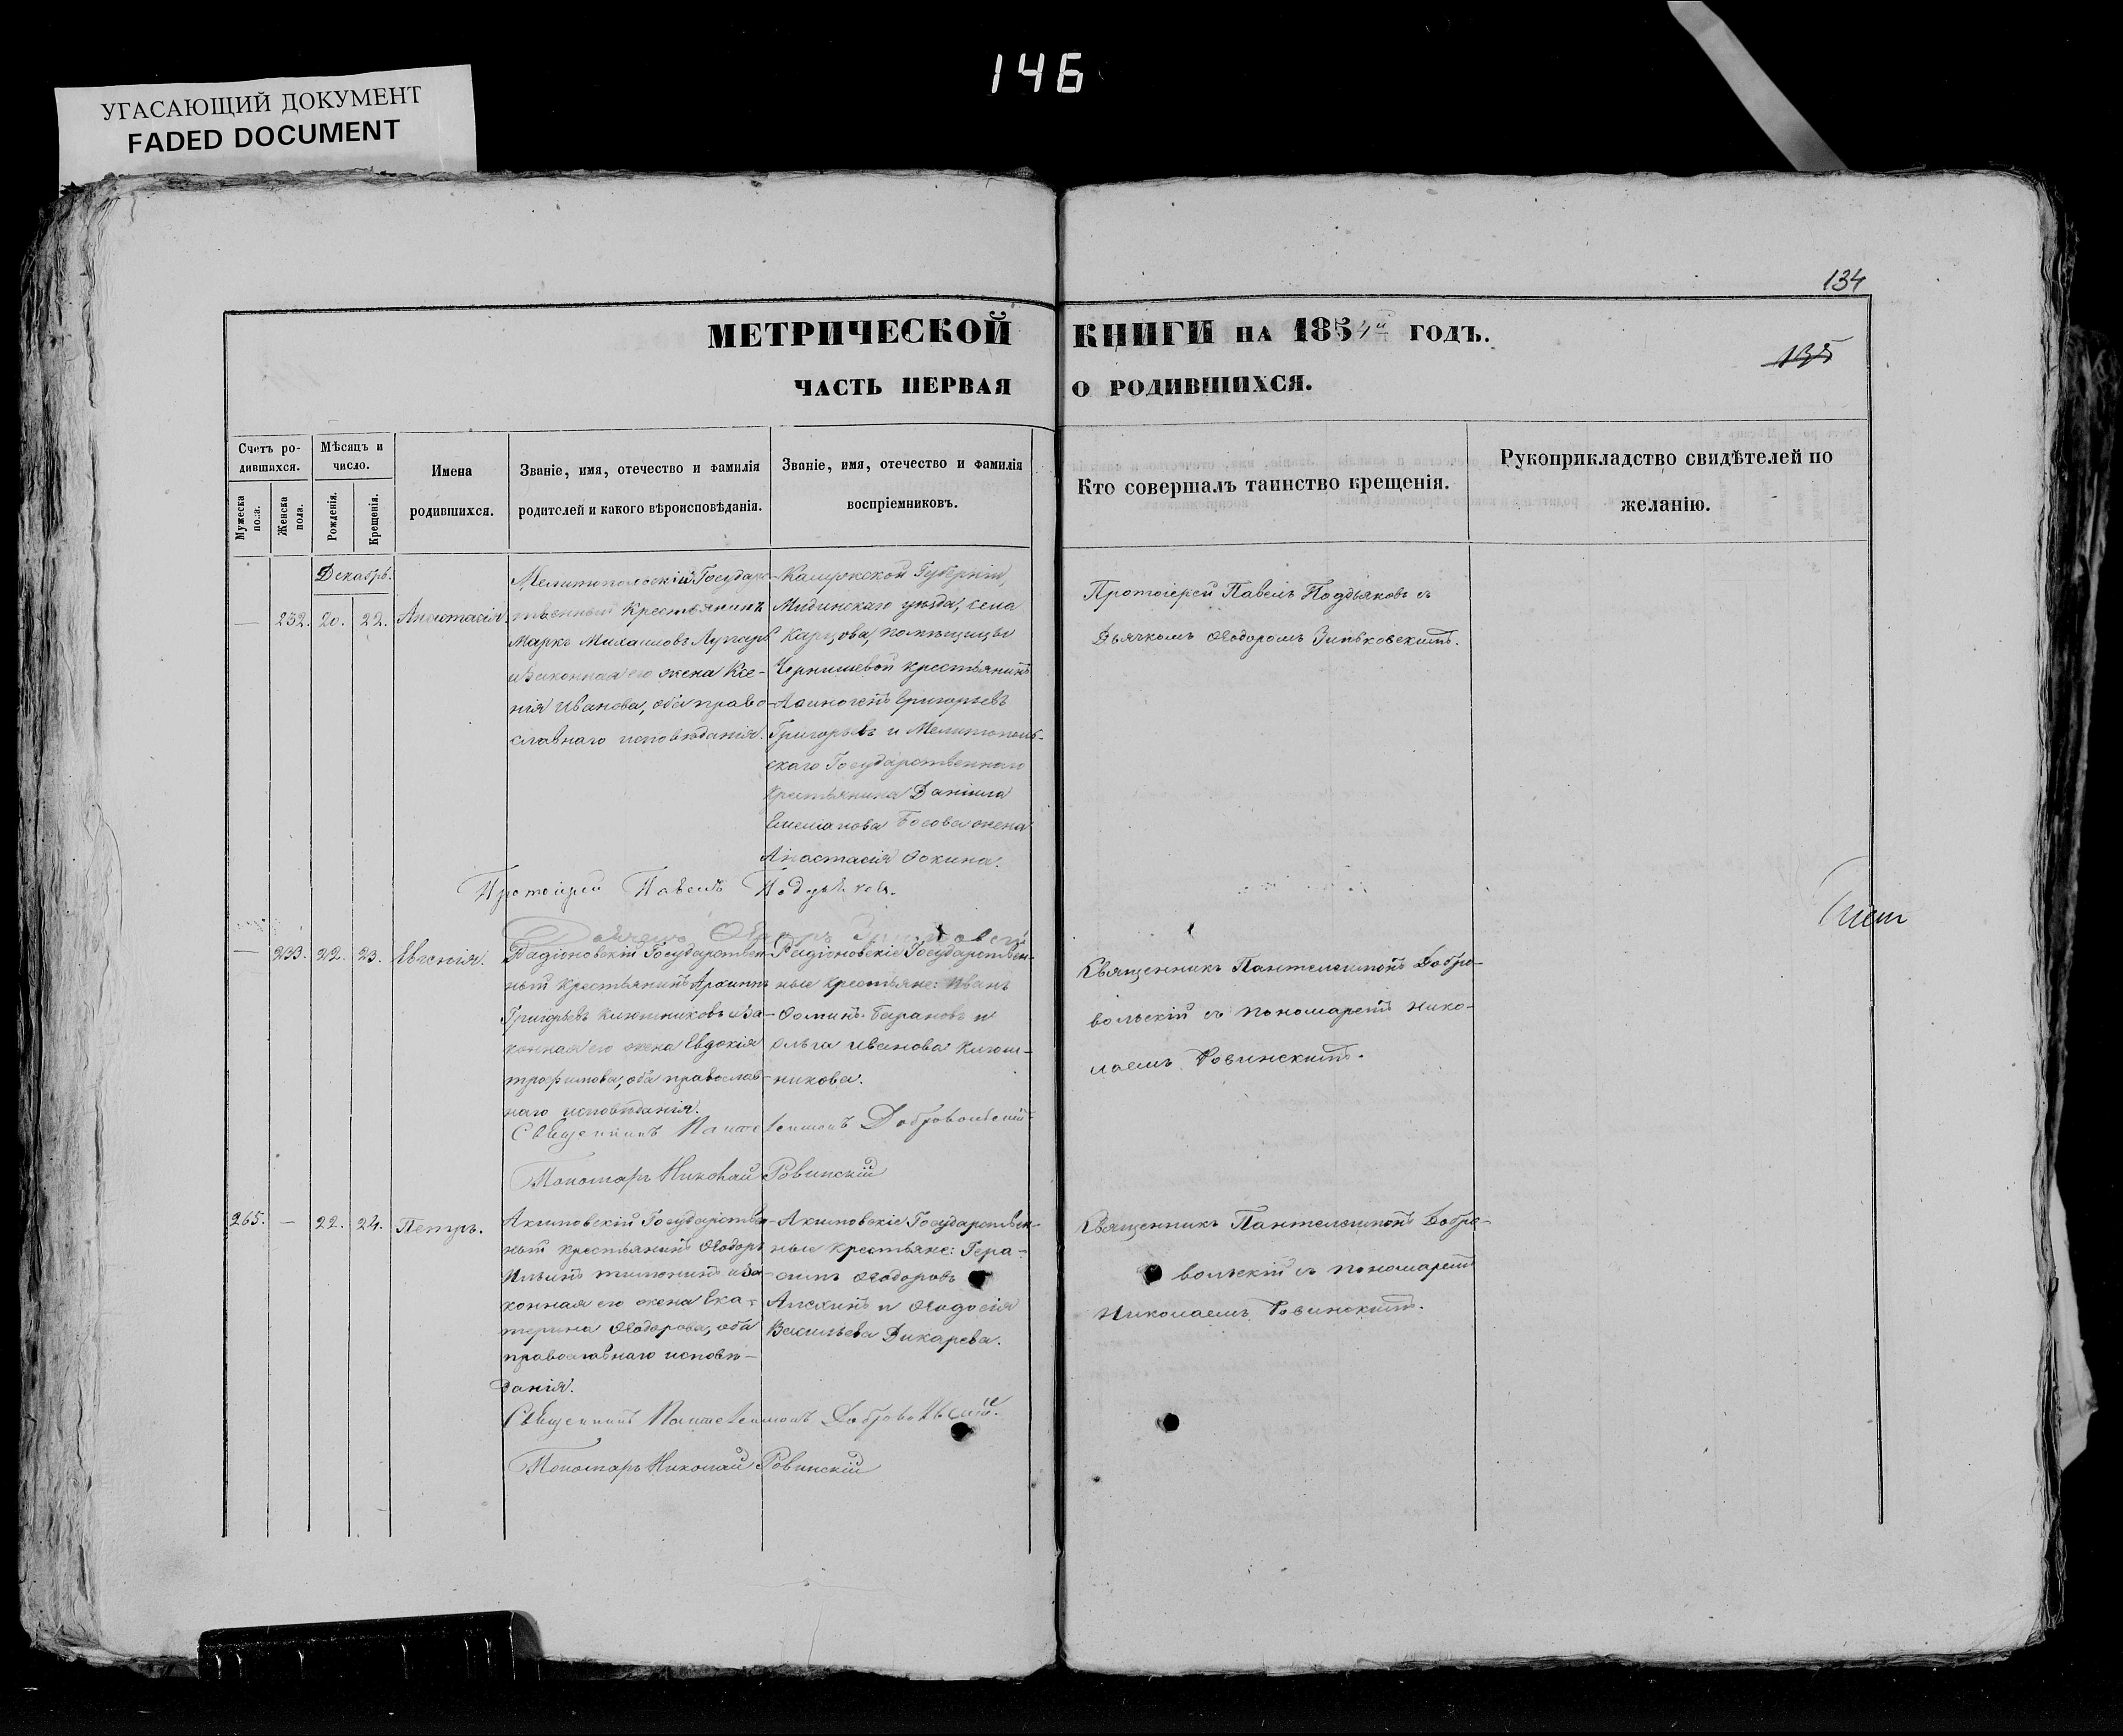 146
УГАСАЮЩИЙ ДОКУМЕНТ
FADED DOCUMENT
134
МЕТРИЧЕСКОЙ КНИГИ НА 1854й ГОДЪ.
135
ЧАСТЬ ПЕРВАЯ О РОДИВШИХСЯ.
Счетъ ро-
дившихся.
Мужеска
пола.
Женска
пола.
Мѣсяцъ и
число.
Рожденія.
Крещенія.
Имена
родившихся.
Званіе, имя, отечество и фамилія
родителей и какого вѣроисповѣданія.
Званіе, имя, отечество и фамилія
воспріемниковъ.
Кто совершалъ таинство крещенія.
Рукоприкладство свидѣтелей по
желанію.
Декабрь.
— 232. 20. 22. Анастасія
Мелитопольскій Государс-
твенный крестьянинъ
Маркъ Михаиловъ
и законная его жена Ксе-
нія Иванова, оба право-
славнаго исповѣданія.
Губерніи,
уѣзда, села
помѣщицы
Чернишевой крестьянинъ
Григорьевъ
Григорьевъ и Мелитополь-
скаго Государственнаго
крестьянина Даніила
Емеліанова Босова жена
Анастасія Фокина.
Протоіерей Павелъ Поддьяковъ съ
Дьячкомъ Ѳеодоромъ Зиньковскимъ.
Протоіерей Павелъ Поддьяковъ.
— 233. 22. 23. Евгенія.
Радіоновскій Государствен-
ный крестьянинъ Архиппъ
Григорьевъ Ключниковъ и за-
конная его жена Евдокія
Трофимова, оба православ-
наго исповѣданія.
Радіоновскіе Государствен-
ные крестьяне: Иванъ
Фоминъ Барановъ и
Ольга Иванова Ключ-
никова.
Священникъ Пантелеимонъ Добро-
вольскій съ пономаремъ Нико-
лаемъ Ровинскимъ.
Священникъ Пантелеимонъ Добровольскій
Пономарь Николай Ровинскій
265. — 22. 24. Петръ.
Акимовскій Государствен-
ный крестьянинъ Ѳеодоръ
Ильинъ и за-
конная его жена Ека-
терина Ѳеодорова, оба
православнаго исповѣ-
данія.
Акимовскіе Государствен-
ные крестьяне: Гера-
симъ Ѳеодоровъ
и Ѳеодосія
Васильева Дикарева.
Священникъ Пантелеимонъ Добро-
вольскій съ пономаремъ
Николаемъ Ровинскимъ.
Священникъ Пантелеимонъ Добровольскій.
Пономарь Николай Ровинскій